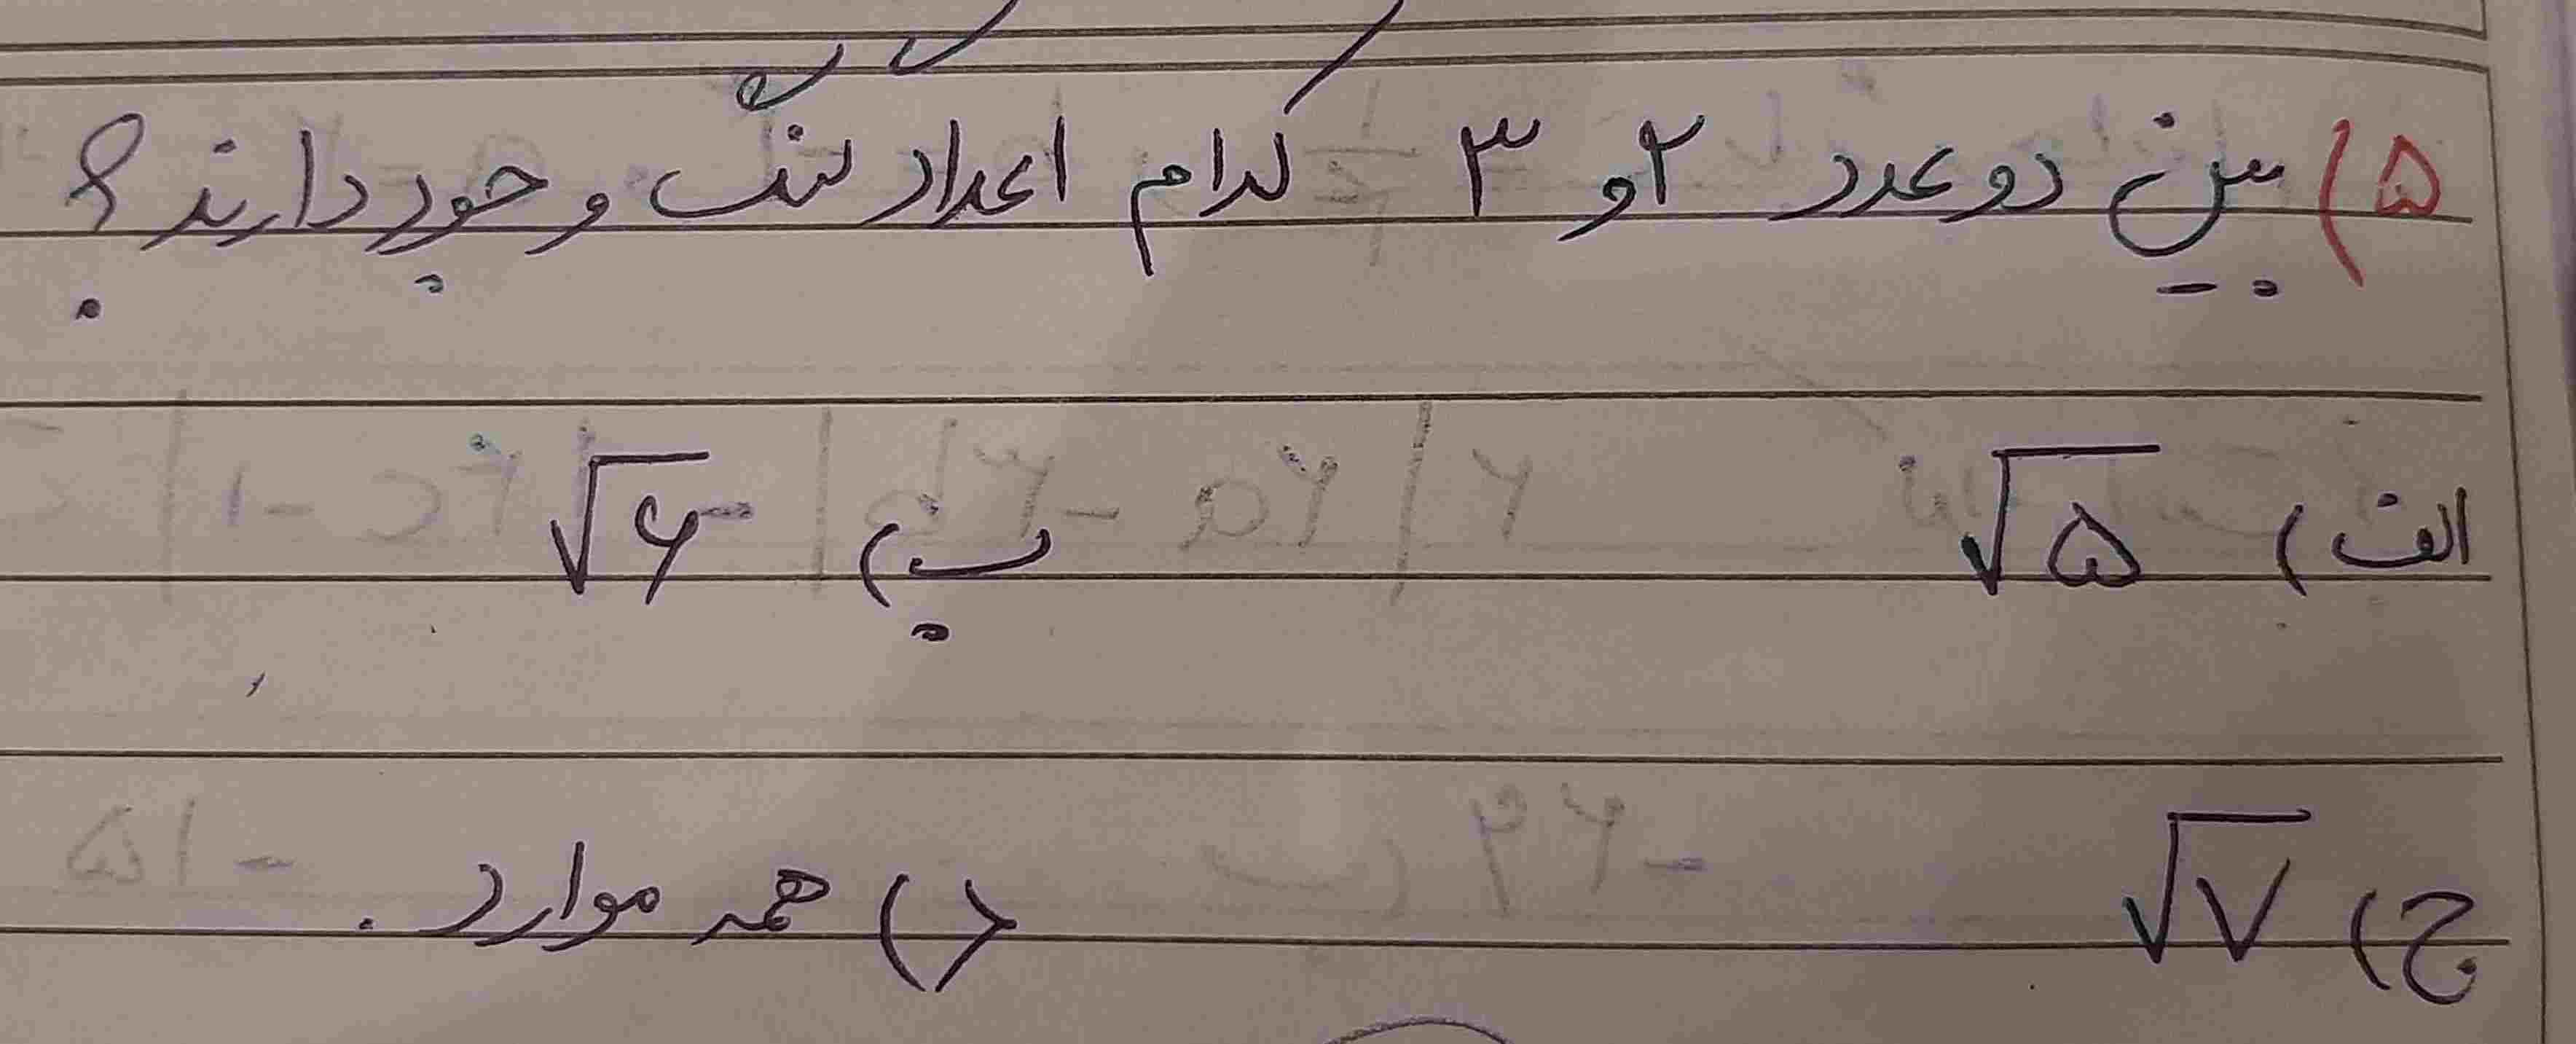 ۵) بین دو عدد ۲ و ۳ کدام اعداد گنگ وجود دارند؟
الف) √۵ ب) √۶
ج) √۷ د) همه موارد.